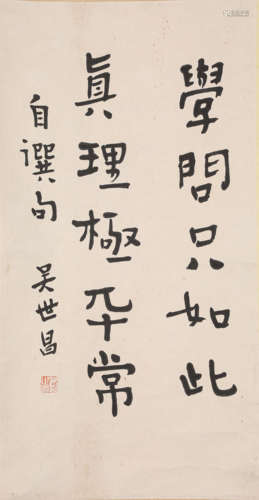 學問只如此
真理極平常
自撰句 吴世昌